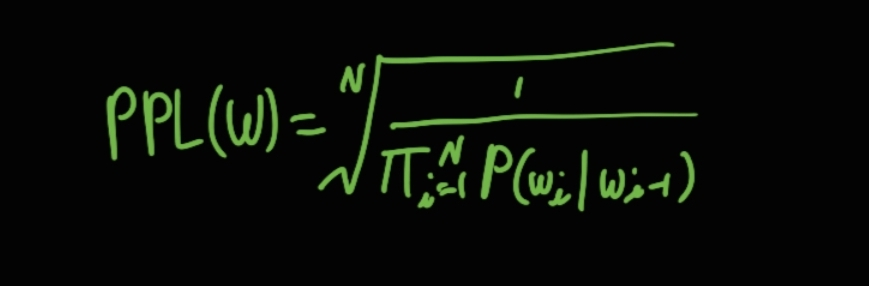 PPL(W) = \sqrt[N]{\frac{1}{\prod_{i=1}^{N} P(w_i | w_{i-1})}}